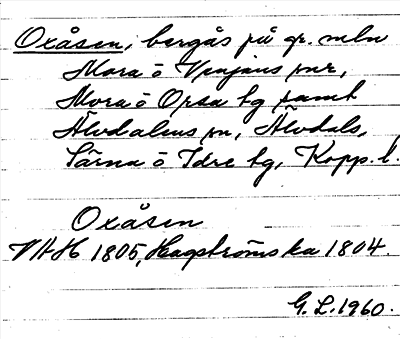 Oxåsen, bergås på gr. mln
Mora o Venjans snr,
Mora o Orsa tg samt
Älvdalens sn, Älvdals,
Särna o Idre tg, Kopp. l.
Oxåsen
VAH 1805, Hagströms ka 1804.
G. L. 1960.